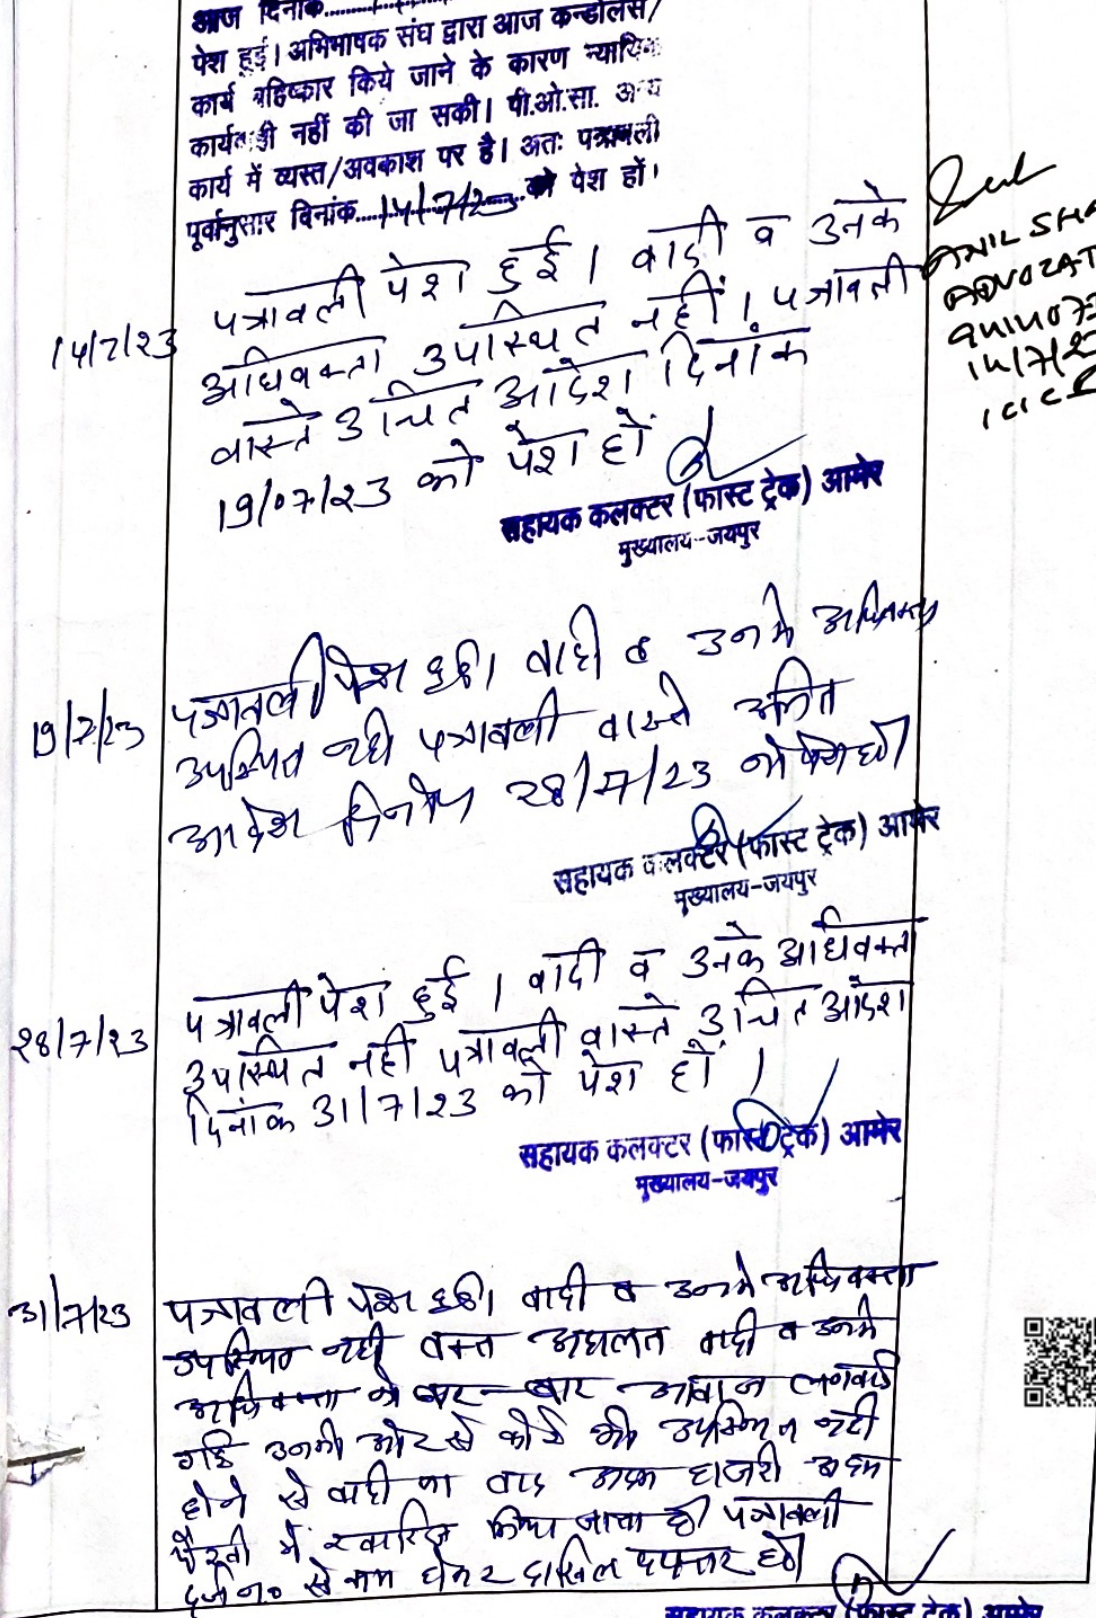 आज दिनांक
पेश हुई। अभिभाषक संघ द्वारा आज कन्डोलेंस/
कार्य बहिष्कार किये जाने के कारण न्यायिक
कार्यवाही नहीं की जा सकी। पी.ओ.सा. अन्य
कार्य में व्यस्त/अवकाश पर है। अतः पत्रावली
पूर्वानुसार दिनांक 14/7/23 को पेश हों।
14/7/23 पत्रावली पेश हुई। वादी व उनके
अधिवक्ता उपस्थित नहीं। पत्रावली
वास्ते उचित आदेश दिनांक
19/07/23 को पेश हों
सहायक कलक्टर (फास्ट ट्रेक) आमेर
मुख्यालय-जयपुर
ANIL SHA
ADVOCAT
14/7/2
19/7/23 पत्रावली पेश हुई। वादी व उनके अधिवक्ता
उपस्थित नहीं पत्रावली वास्ते उचित
आदेश दिनांक 28/7/23 को पेश हो।
सहायक कलक्टर (फास्ट ट्रेक) आमेर
मुख्यालय-जयपुर
28/7/23 पत्रावली पेश हुई। वादी व उनके अधिवक्ता
उपस्थित नहीं पत्रावली वास्ते उचित आदेश
दिनांक 31/7/23 को पेश हों।
सहायक कलक्टर (फास्ट ट्रेक) आमेर
मुख्यालय-जयपुर
31/7/23 पत्रावली पेश हुई। वादी व उनके अधिवक्ता
उपस्थित नहीं वक्त अदालत वादी व उनके
अधिवक्ता को बार-बार आवाज लगवाई
गई उनकी ओर से कोई भी उपस्थित नहीं
होने से वादी का वाद अदम हाजरी अदम
पैरवी में खारिज किया जाता है। पत्रावली
दर्ज न० से कम होकर दाखिल दफ्तर हो।
सहायक कलक्टर (फास्ट ट्रेक) आमेर